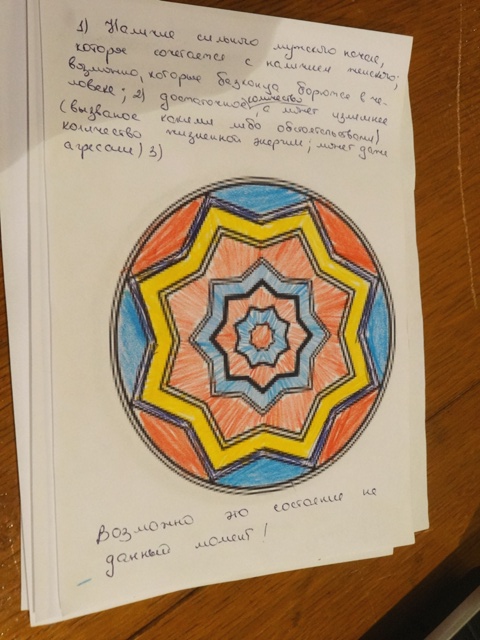 1) Наличие сильного мужского начала,
которое сочетается с наличием женского,
возможно, которые без конца борются в че-
ловеке; 2) достаточное количество, а может излишнее
(вызваное какими либо обстоятельствами)
количество жизненной энергии, может даже
агрессии) 3)
Возможно это состояние на
данный момент!